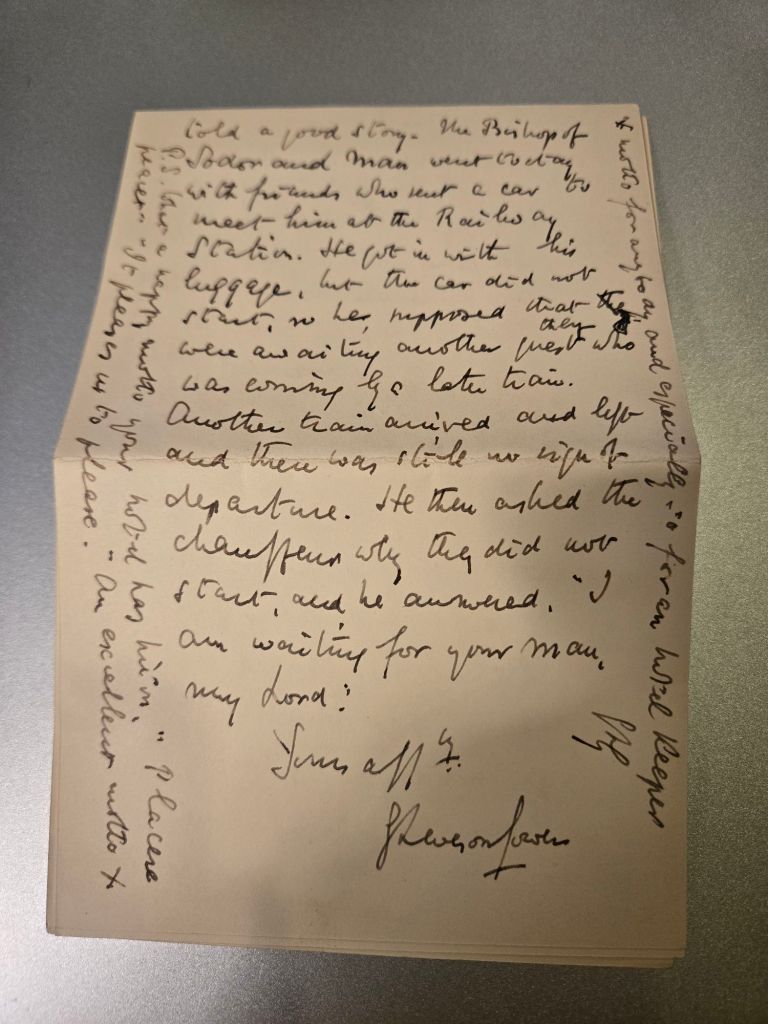 told a good story. The Bishop of
Sodor and Man went to stay
with friends who sent a car to
meet him at the Railway
Station. He got in with his
luggage, but the car did not
start, so he supposed that
they
were awaiting another guest who
was coming by a later train.
Another train arrived and left
and there was still no sign of
departure. He then asked the
chauffeur why they did not
start, and he answered. "I
am waiting for your man,
my Lord."
Yours aff ly.
G Leveson Gower
P.S. What a happy motto your hotel has hit on, "Placere
placet" "It pleases us to please." An excellent motto x
x motto for anybody and especially so for an hotel keeper
GLG